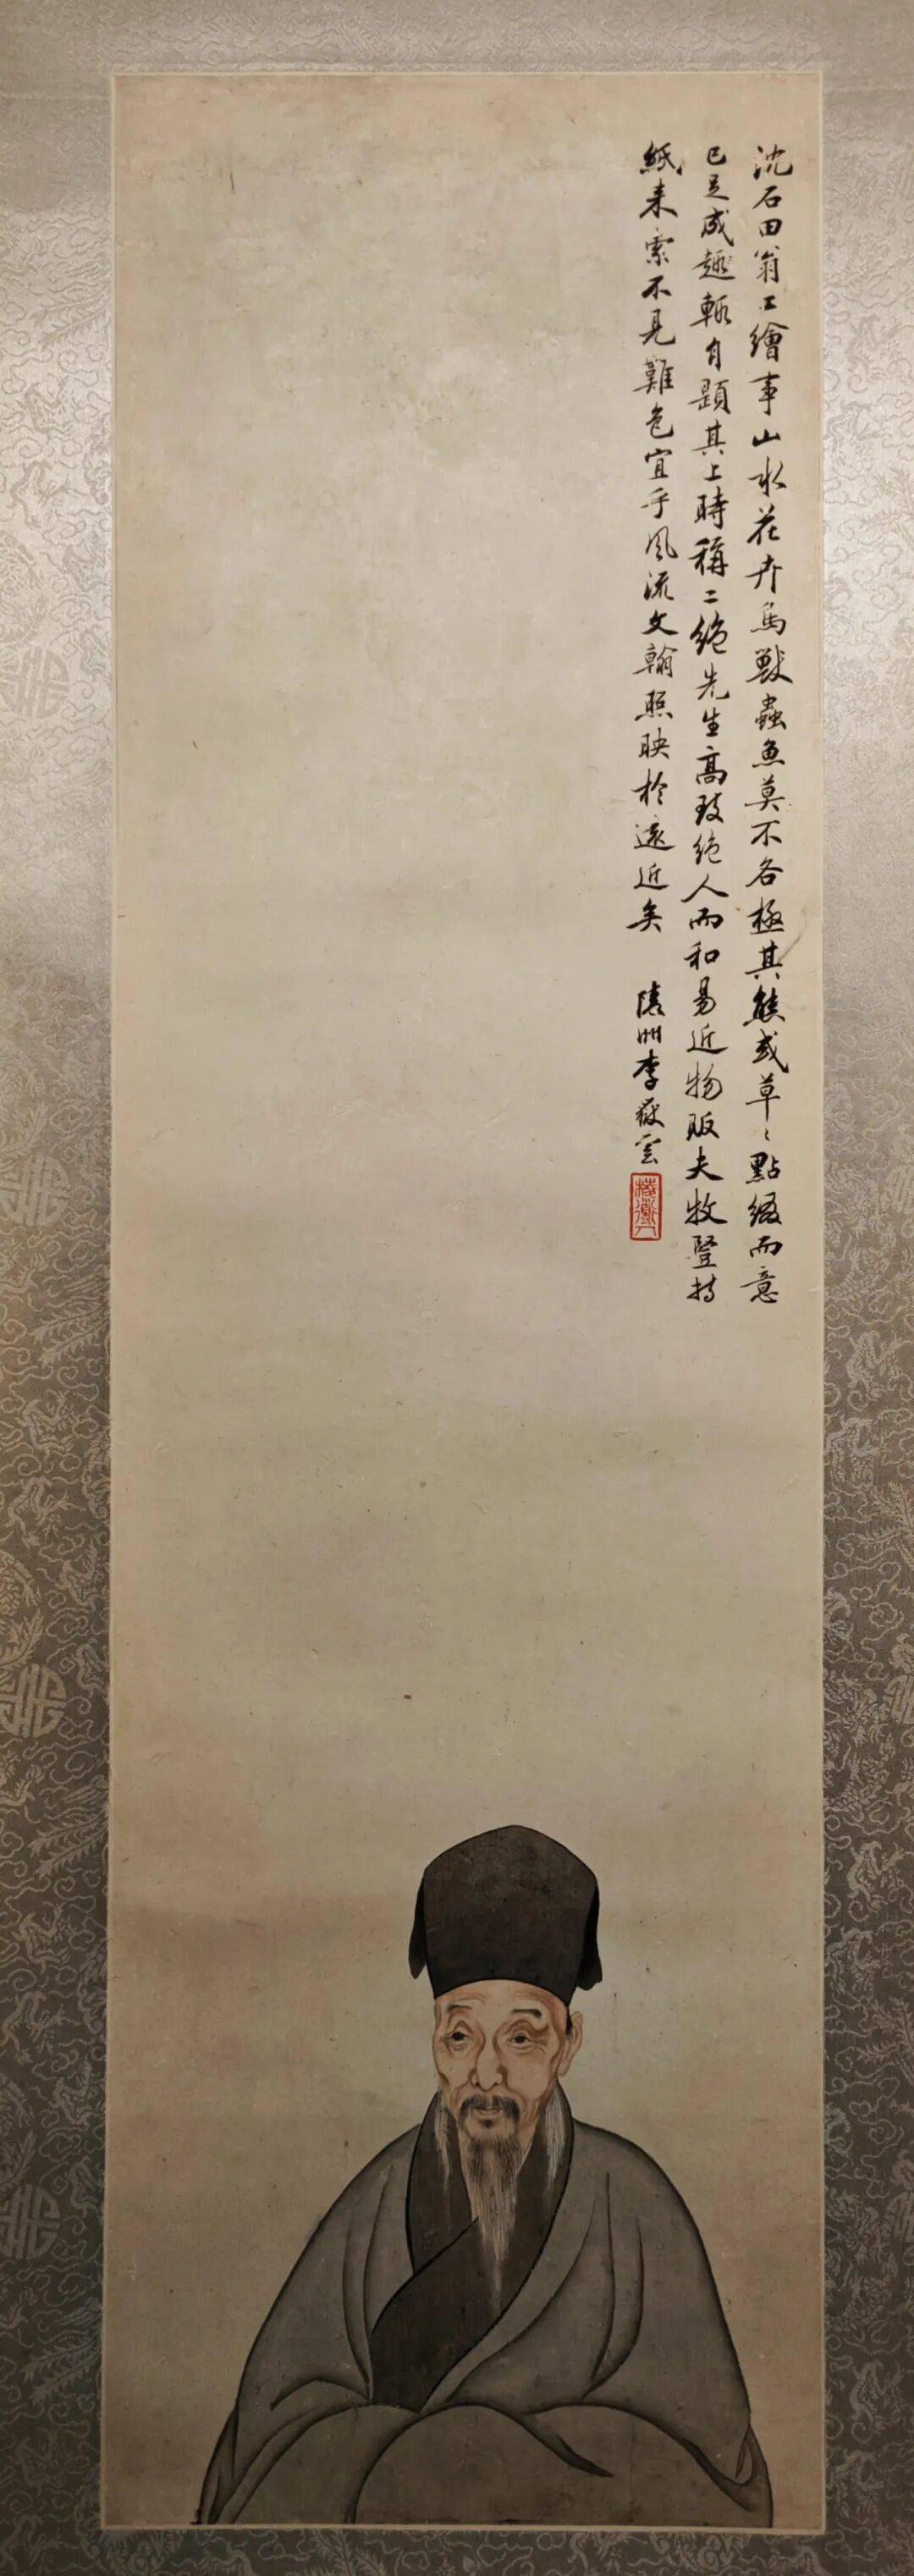 沈石田翁工繪事山水花卉鳥獸蟲魚莫不各極其態或草〻點綴而意
已足成趣輒自題其上時稱二絕先生高致絕人而和易近物販夫牧豎持
紙來索不見難色宜乎風流文翰照映於遠近矣 李嶽雲